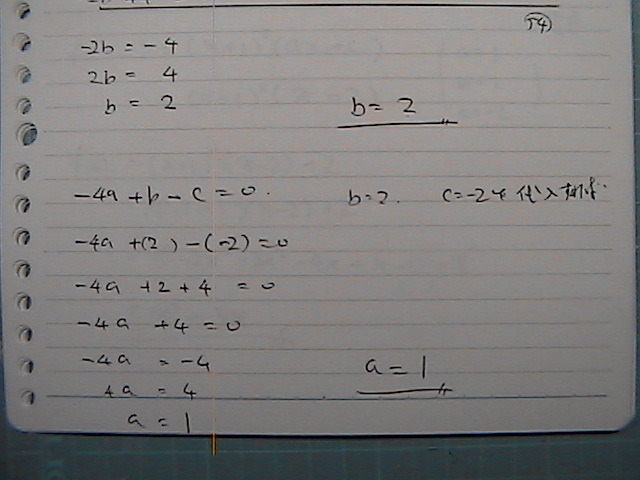 54
-2b = -4
2b = 4
b = 2
b = 2
-4a + b - c = 0. b=2. c=-2を代入すれば.
-4a + (2) - (-2) = 0
-4a + 2 + 4 = 0
-4a + 4 = 0
-4a = -4
a = 1
4a = 4
a = 1